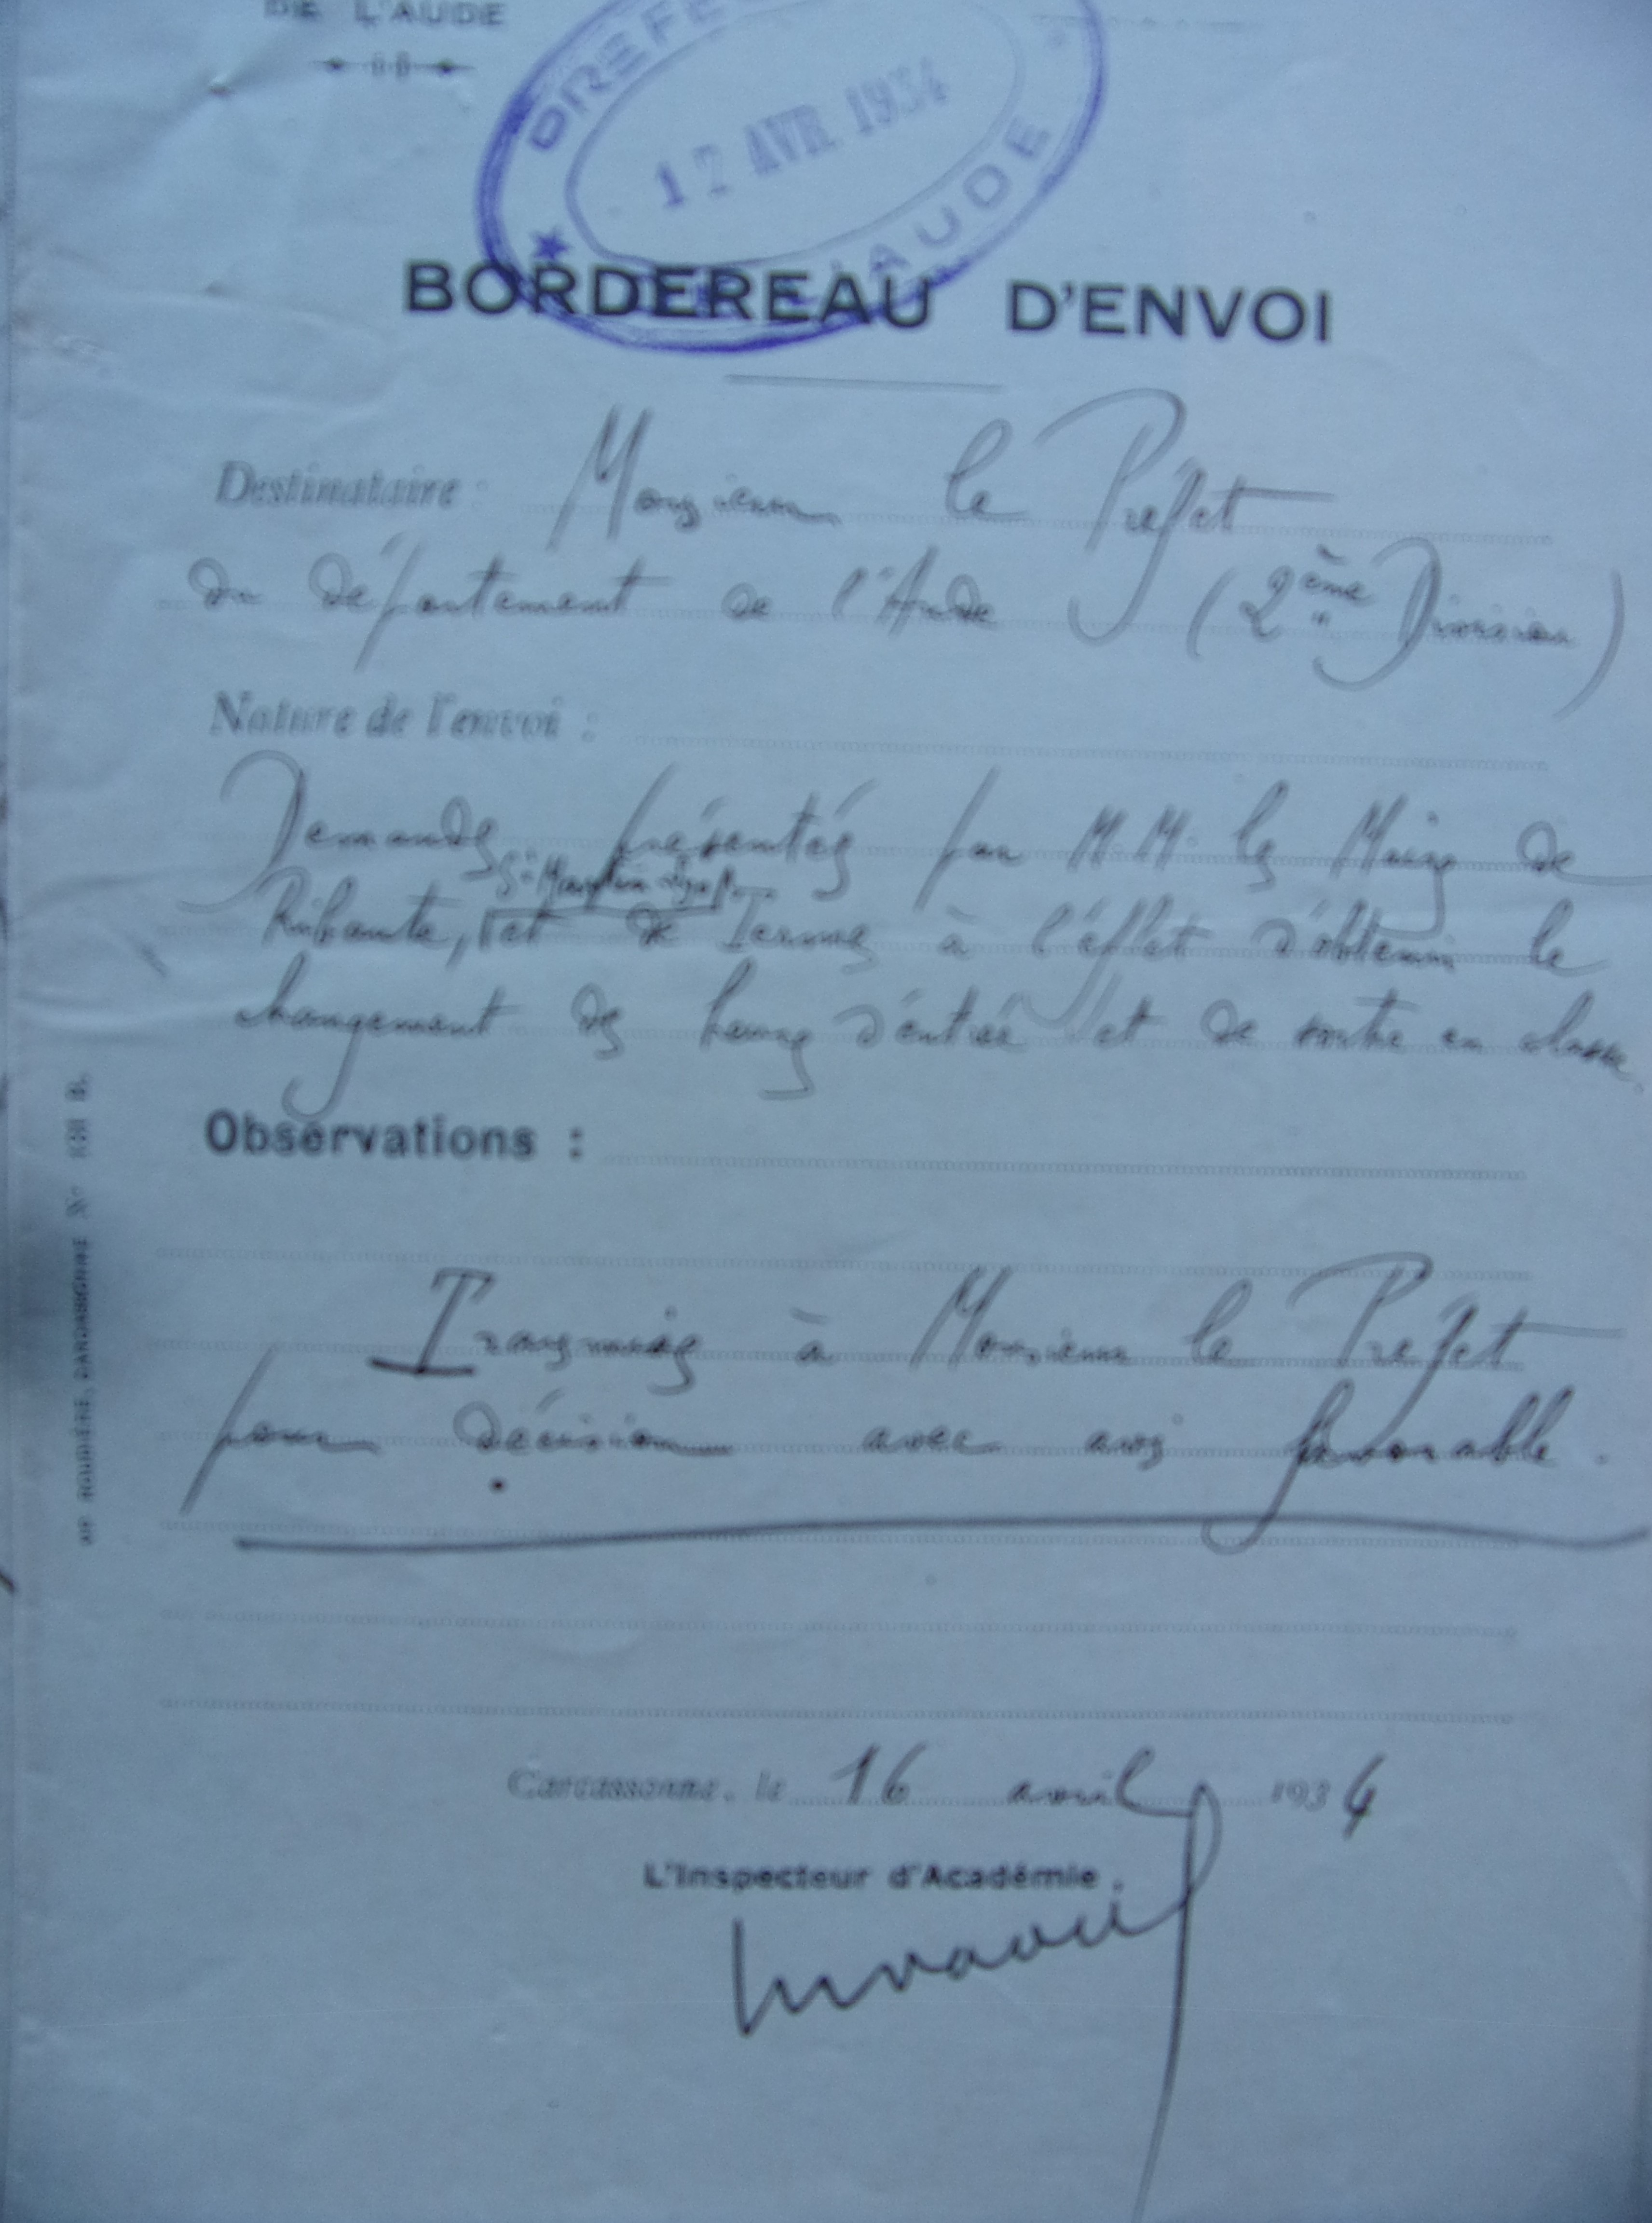 DE L'AUDE
PREFE
17 AVR 1934
AUDE
BORDEREAU D'ENVOI
Destinataire : Monsieur le Préfet
du département de l'Aude (2ème Division)
Nature de l'envoi :
Demandes présentées par M.M. les Maires de
St Martin
Ribaute, et de Termes à l'effet d'obtenir le
changement des heures d'entrée et de sortie en classe.
Observations :
Transmises à Monsieur le Préfet
pour décision avec avis favorable.
Carcassonne, le 16 avril 1934
L'Inspecteur d'Académie.